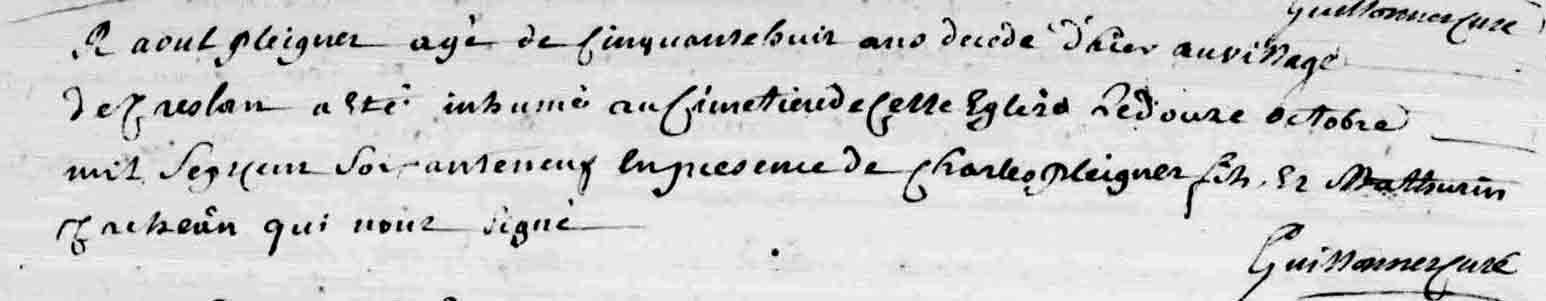 Guillonnet Curé
Raoul pleigner agé de Cinquantehuit ans decédé d'hier au village
de a Eté inhumé au Cimetiere de Cette Eglise Le douze octobre
mil Sept cent Soixanteneuf En presence de Charles pleigner fils, Et Mathurin
qui n'ont Signé
Guillonnet Curé